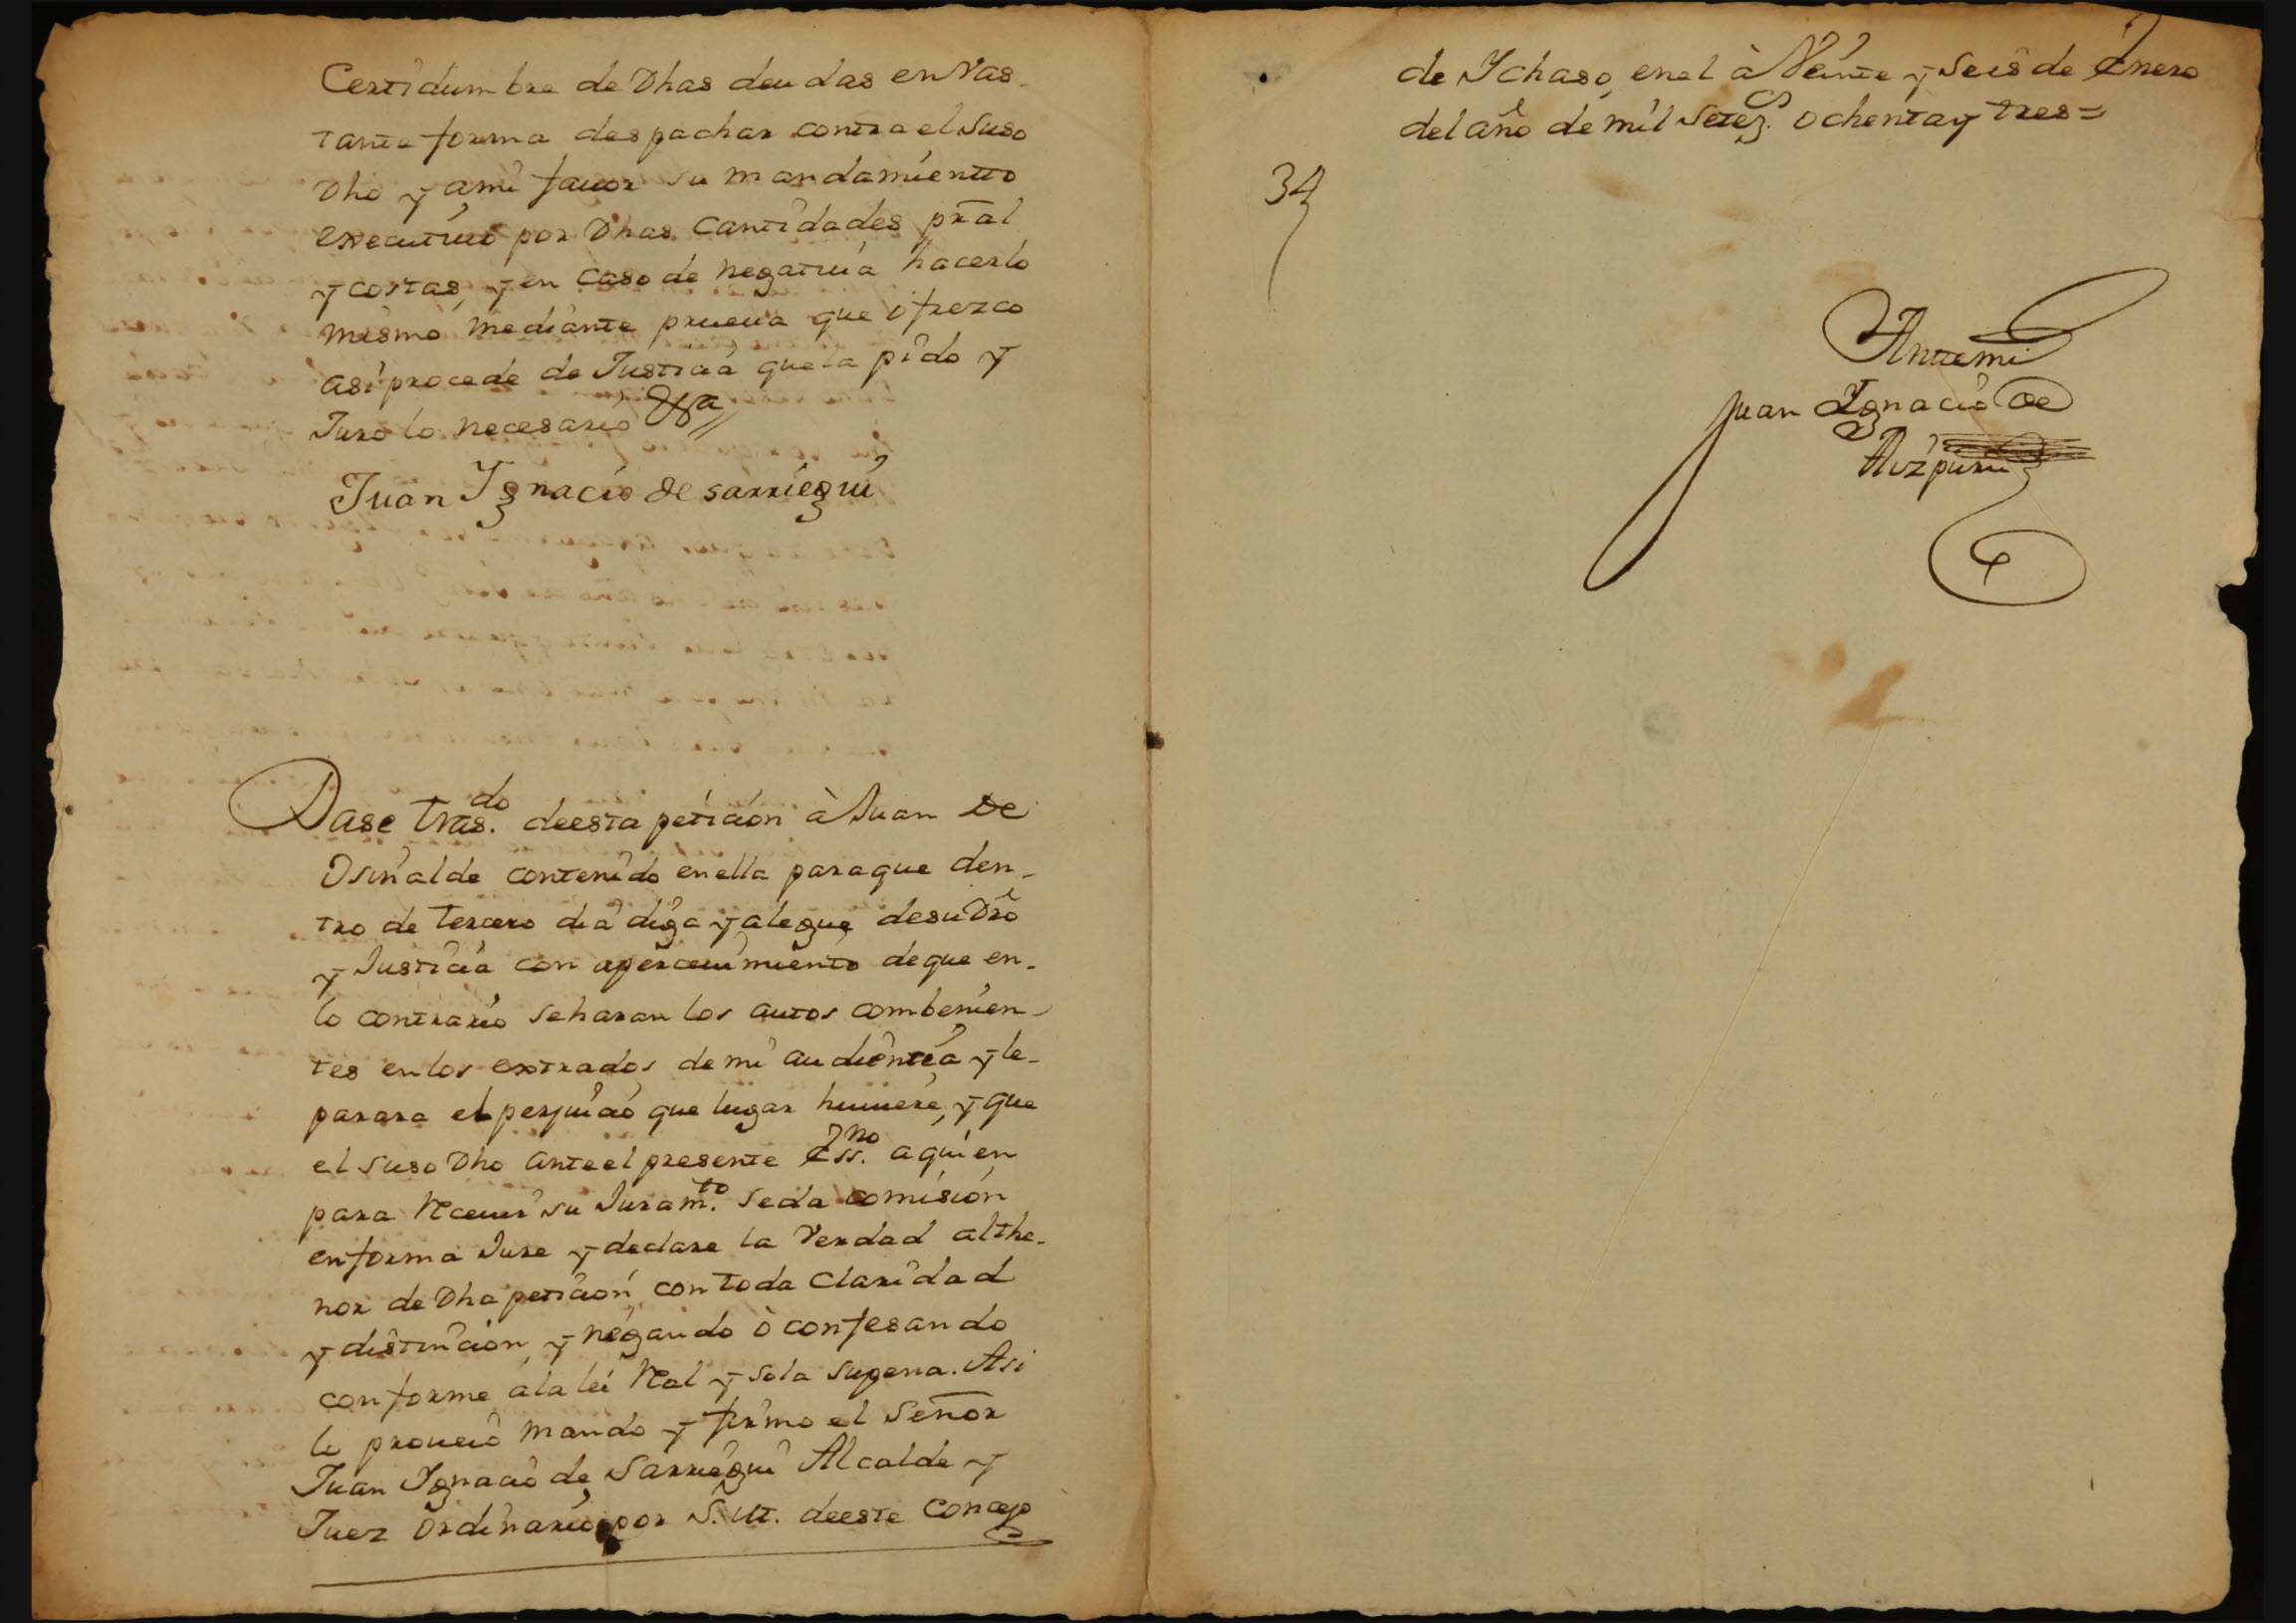 Certidumbre de Dhas deudas en vas-
tante forma despachar contra el suso
Dho y ami fauor su mandamientto
executiuo por Dhas Cantidades pral
y costas, y en caso de negatiua hacerlo
mismo mediante prueua que ofrezco
asi procede de Justicia que la pido y
Juro lo necesario &a//
Juan Ygnacio de sarriegui
Dase tras.do deesta petición à Juan de
Osinalde contenido enella paraque den-
tro de tercero dia diga y alegue desu Dro
y Justicia con aperceuimiento deque en-
lo contrario seharan los autos combenien-
tes enlos extrados de mi audientia y le-
parara el perjuicio que lugar huuiere, y que
el suso Dho ante el presente Ess.no aquien
para Receuir su Juram.to seda comisión
enforma Jure y declare la verdad althe-
nor de Dha petición con toda claridad
y distinción, y negando ò confesando
conforme ala lei Real y sola supena. Asi
lo proueió mando y firmo el Señor
Juan Ygnacio de Sarriegui Alcalde y
Juez ordinario por S. M. deeste Concejo
de Ychaso, enel à Veinte y seis de Enero
del año de mil setez.s ochentay tres=
34
Antemi
Juan Ygnacio de
Aizpuru